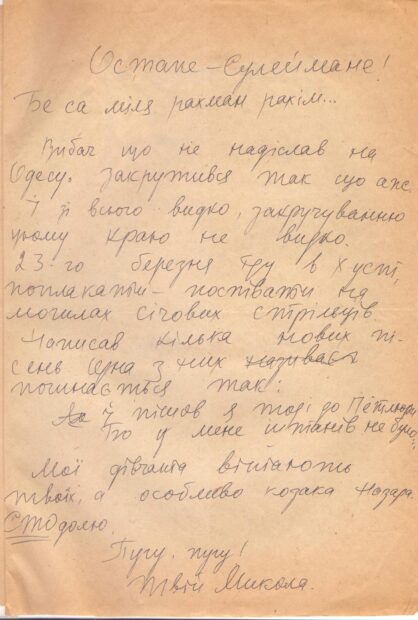 Остапе – Сулеймане!
Бе са міля рахман рахім...
Вибач що не надіслав на
Одесу. Закрутився так що а нс.
І зі всього видко, закручуванню
цьому краю не видко.
23-го березня їду в Хуст,
поплакати – постваати на
могилах січових стрільців.
Написав кілька нових пі-
сень Одна з них називаєт
починається так:
Ай пішов я тоді до Петлюри
Бо у мене штанів не було,
Мої дівчата вітають
твоїх, а особливо козака Назара
СТОдолю.
Пугу, пугу!
Твій Микола.